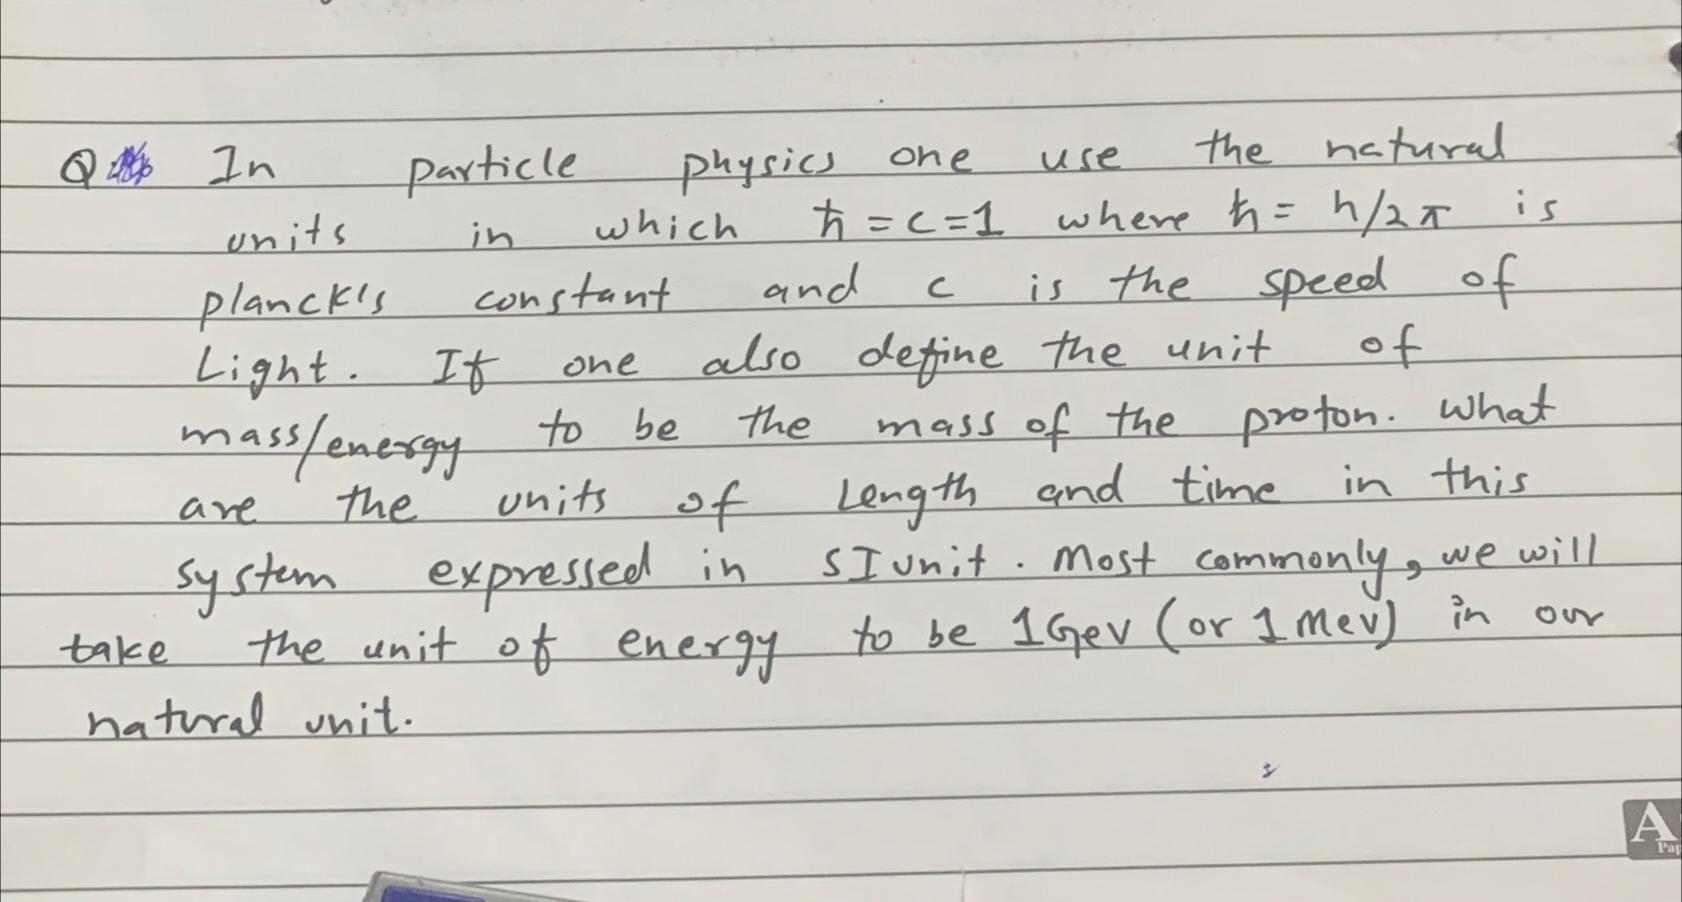 Q In particle physics one use the natural
units in which ħ = c = 1 where ħ = h/2π is
planck's constant and c is the speed of
Light. If one also define the unit of
mass/energy to be the mass of the proton. What
are the units of Length and time in this
system expressed in SI unit. Most commonly, we will
take the unit of energy to be 1 Gev (or 1 Mev) in our
natural unit.
A
Pap